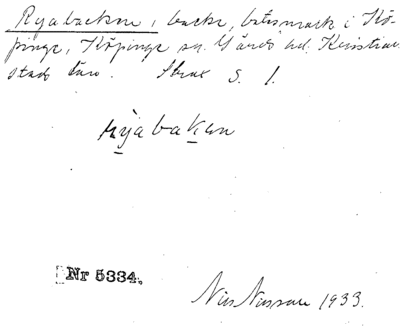 Ryabacken, backe, båtsmark i Kö-
pinge, Köpinge sn. Gärds hd. Kristian-
stads län. S. 1.
ryabaken
Nr 5334.
Nils Nilsson 1933.